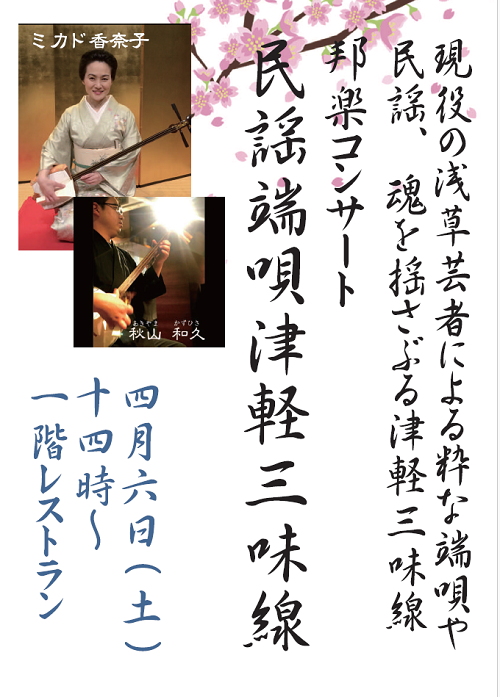 現役の浅草芸者による粋な端唄や
民謡、魂を揺さぶる津軽三味線
邦楽コンサート
民謡端唄津軽三味線
ミカド香奈子
あきやま かずひさ
秋山 和久
四月六日(土)
十四時〜
一階レストラン